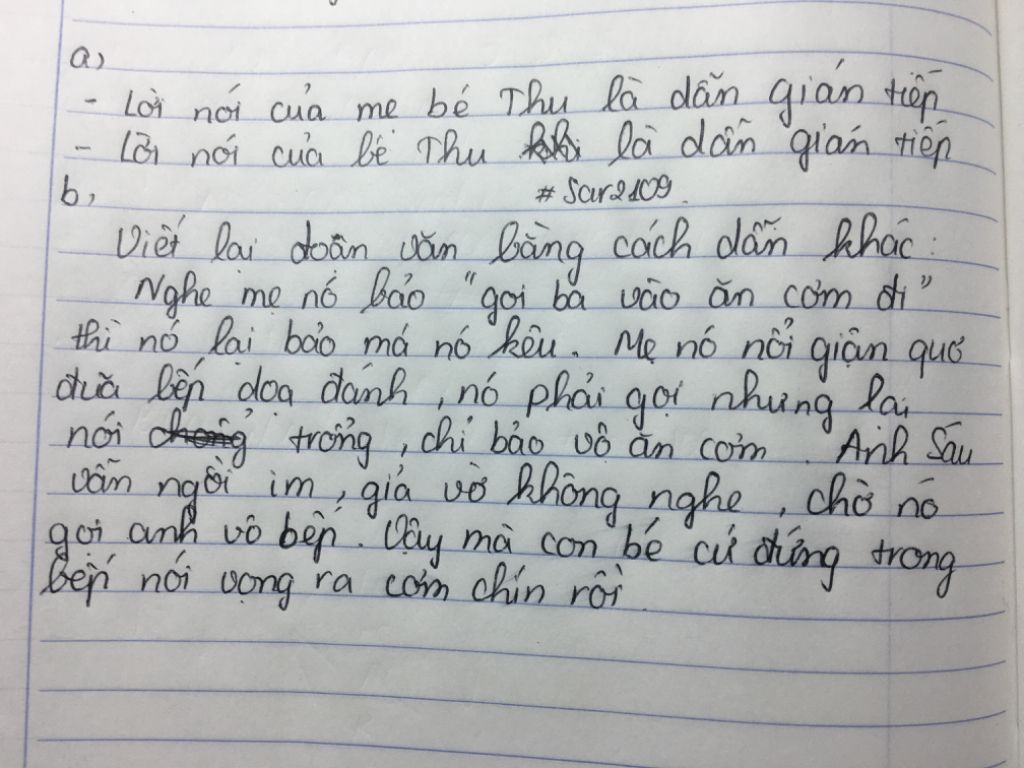 a,
- Lời nói của mẹ bé Thu là dẫn gián tiếp
- Lời nói của bé Thu là dẫn gián tiếp
b,
# Sar2109.
Viết lại đoạn văn bằng cách dẫn khác:
Nghe mẹ nó bảo "gọi ba vào ăn cơm đi"
thì nó lại bảo má nó kêu. Mẹ nó nổi giận quơ
đũa bếp dọa đánh, nó phải gọi nhưng lại
nói trổng, chỉ bảo vô ăn cơm. Anh Sáu
vẫn ngồi im, giả vờ không nghe, chờ nó
gọi anh vô bếp. Vậy mà con bé cứ đứng trong
bếp nói vọng ra cơm chín rồi.